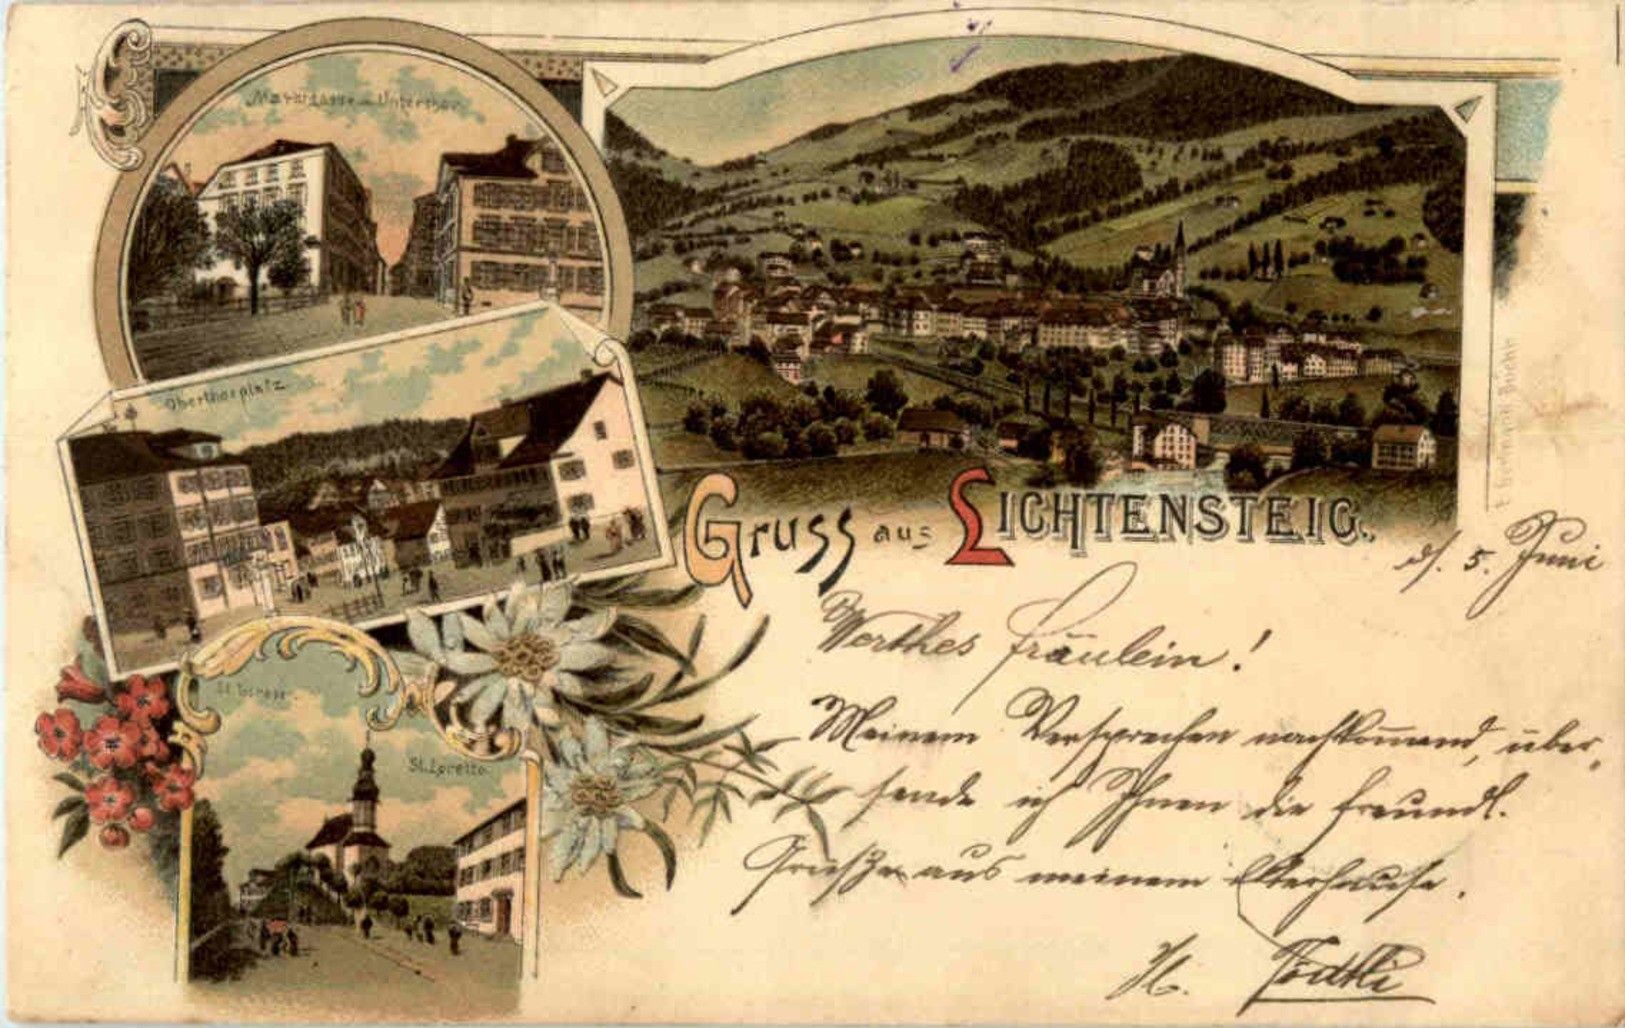 Marktgasse u. Unterthor
Oberthorplatz
St. Loreto
St. Loretto
Gruss aus Lichtensteig.
d. 5. Juni
Werthes Fräulein!
Meinem Versprechen nachkommend, über-
sende ich Ihnen die freundl.
Grüsse aus meinem Elternhause.
H.